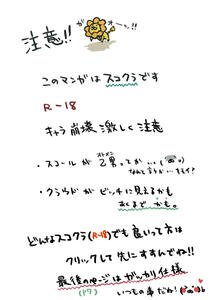 注意!! ガオーッ!!
このマンガはスコクラです
R-18
キャラ崩壊激しく注意
・スコールが乙男ってか…
オトメン
・クラウドがビッチに見えるかも
あくまで かも。
どんなスコクラ(R-18)でも良いって方は
クリックして先にすすんでね!!
最後のページはガッカリ仕様
(P7) いつもの事だね!